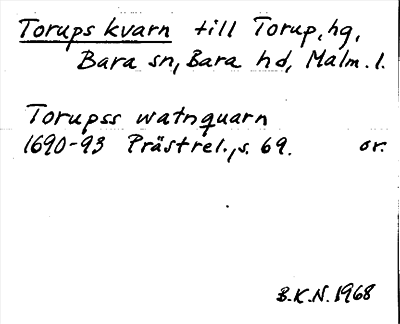 Torups kvarn till Torup, hg,
Bara sn, Bara hd, Malm. l.
Torupss watnquarn
1690-93 Prästrel., s. 69. or.
B.K.N. 1968